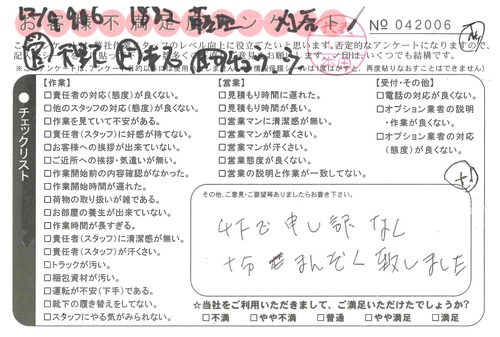 お客様不満足アンケート
No 042006
※アンケートは、アンケート目的以外には使用いたしません。
再度貼りなおすことはできません)
チェックリスト
【作業】
□責任者の対応(態度)が良くない。
□他のスタッフの対応(態度)が良くない。
□作業を見ていて不安がある。
□責任者(スタッフ)に好感が持てない。
□お客様への挨拶が出来ていない。
□ご近所への挨拶・気遣いが無い。
□作業開始前の内容確認がなかった。
□作業開始時間が遅れた。
□荷物の取り扱いが雑である。
□お部屋の養生が出来ていない。
□作業時間が長すぎる。
□責任者(スタッフ)に清潔感が無い。
□責任者(スタッフ)が汗くさい。
□トラックが汚い。
□梱包資材が汚い。
□運転が不安(下手)である。
□靴下の履き替えをしてない。
□スタッフにやる気がみられない。
【営業】
□見積もり時間に遅れた。
□見積もり時間が長い。
□営業マンに清潔感が無い。
□営業マンが煙草くさい。
□営業マンが汗くさい。
□営業態度が良くない。
□営業の説明と作業が一致してない。
【受付・その他】
□電話の対応が良くない。
□オプション業者の説明
・作業が良くない。
□オプション業者の対応
(態度)が良くない。
その他、ご意見・ご要望等ありましたらお書き下さい。
申し訳なく
十分まんぞく致しました
☆当社をご利用いただきまして、ご満足いただけたでしょうか?
□不満 □やや不満 □普通 □やや満足 □満足